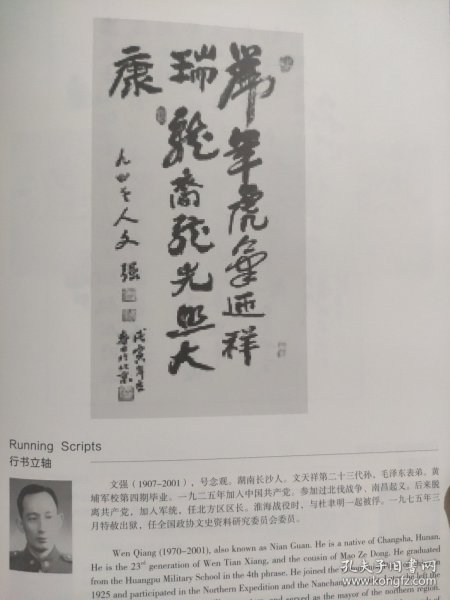 虎氣迎祥
瑞龍裔龍光照大
康
人文强
戊寅年立
春書於北京
Running Scripts
行书立轴
文强(1907-2001),号念观。湖南长沙人。文天祥第二十三代孙,毛泽东表弟。黄
埔军校第四期毕业。一九二五年加入中国共产党。参加过北伐战争、南昌起义。后来脱
离共产党,加入军统,任北方区区长。淮海战役时,与杜聿明一起被俘。一九七五年三
月特赦出狱,任全国政协文史资料研究委员会委员。
Wen Qiang (1970-2001), also known as Nian Guan. He is a native of Changsha, Hunan.
He is the 23rd generation of Wen Tian Xiang, and the cousin of Mao Ze Dong. He graduated
from the Huangpu Military School in the 4th phrase. He joined the
1925 and participated in the Northern Expedition and the Nanchang
and served as the mayor of the northern region.
孔夫子旧书网